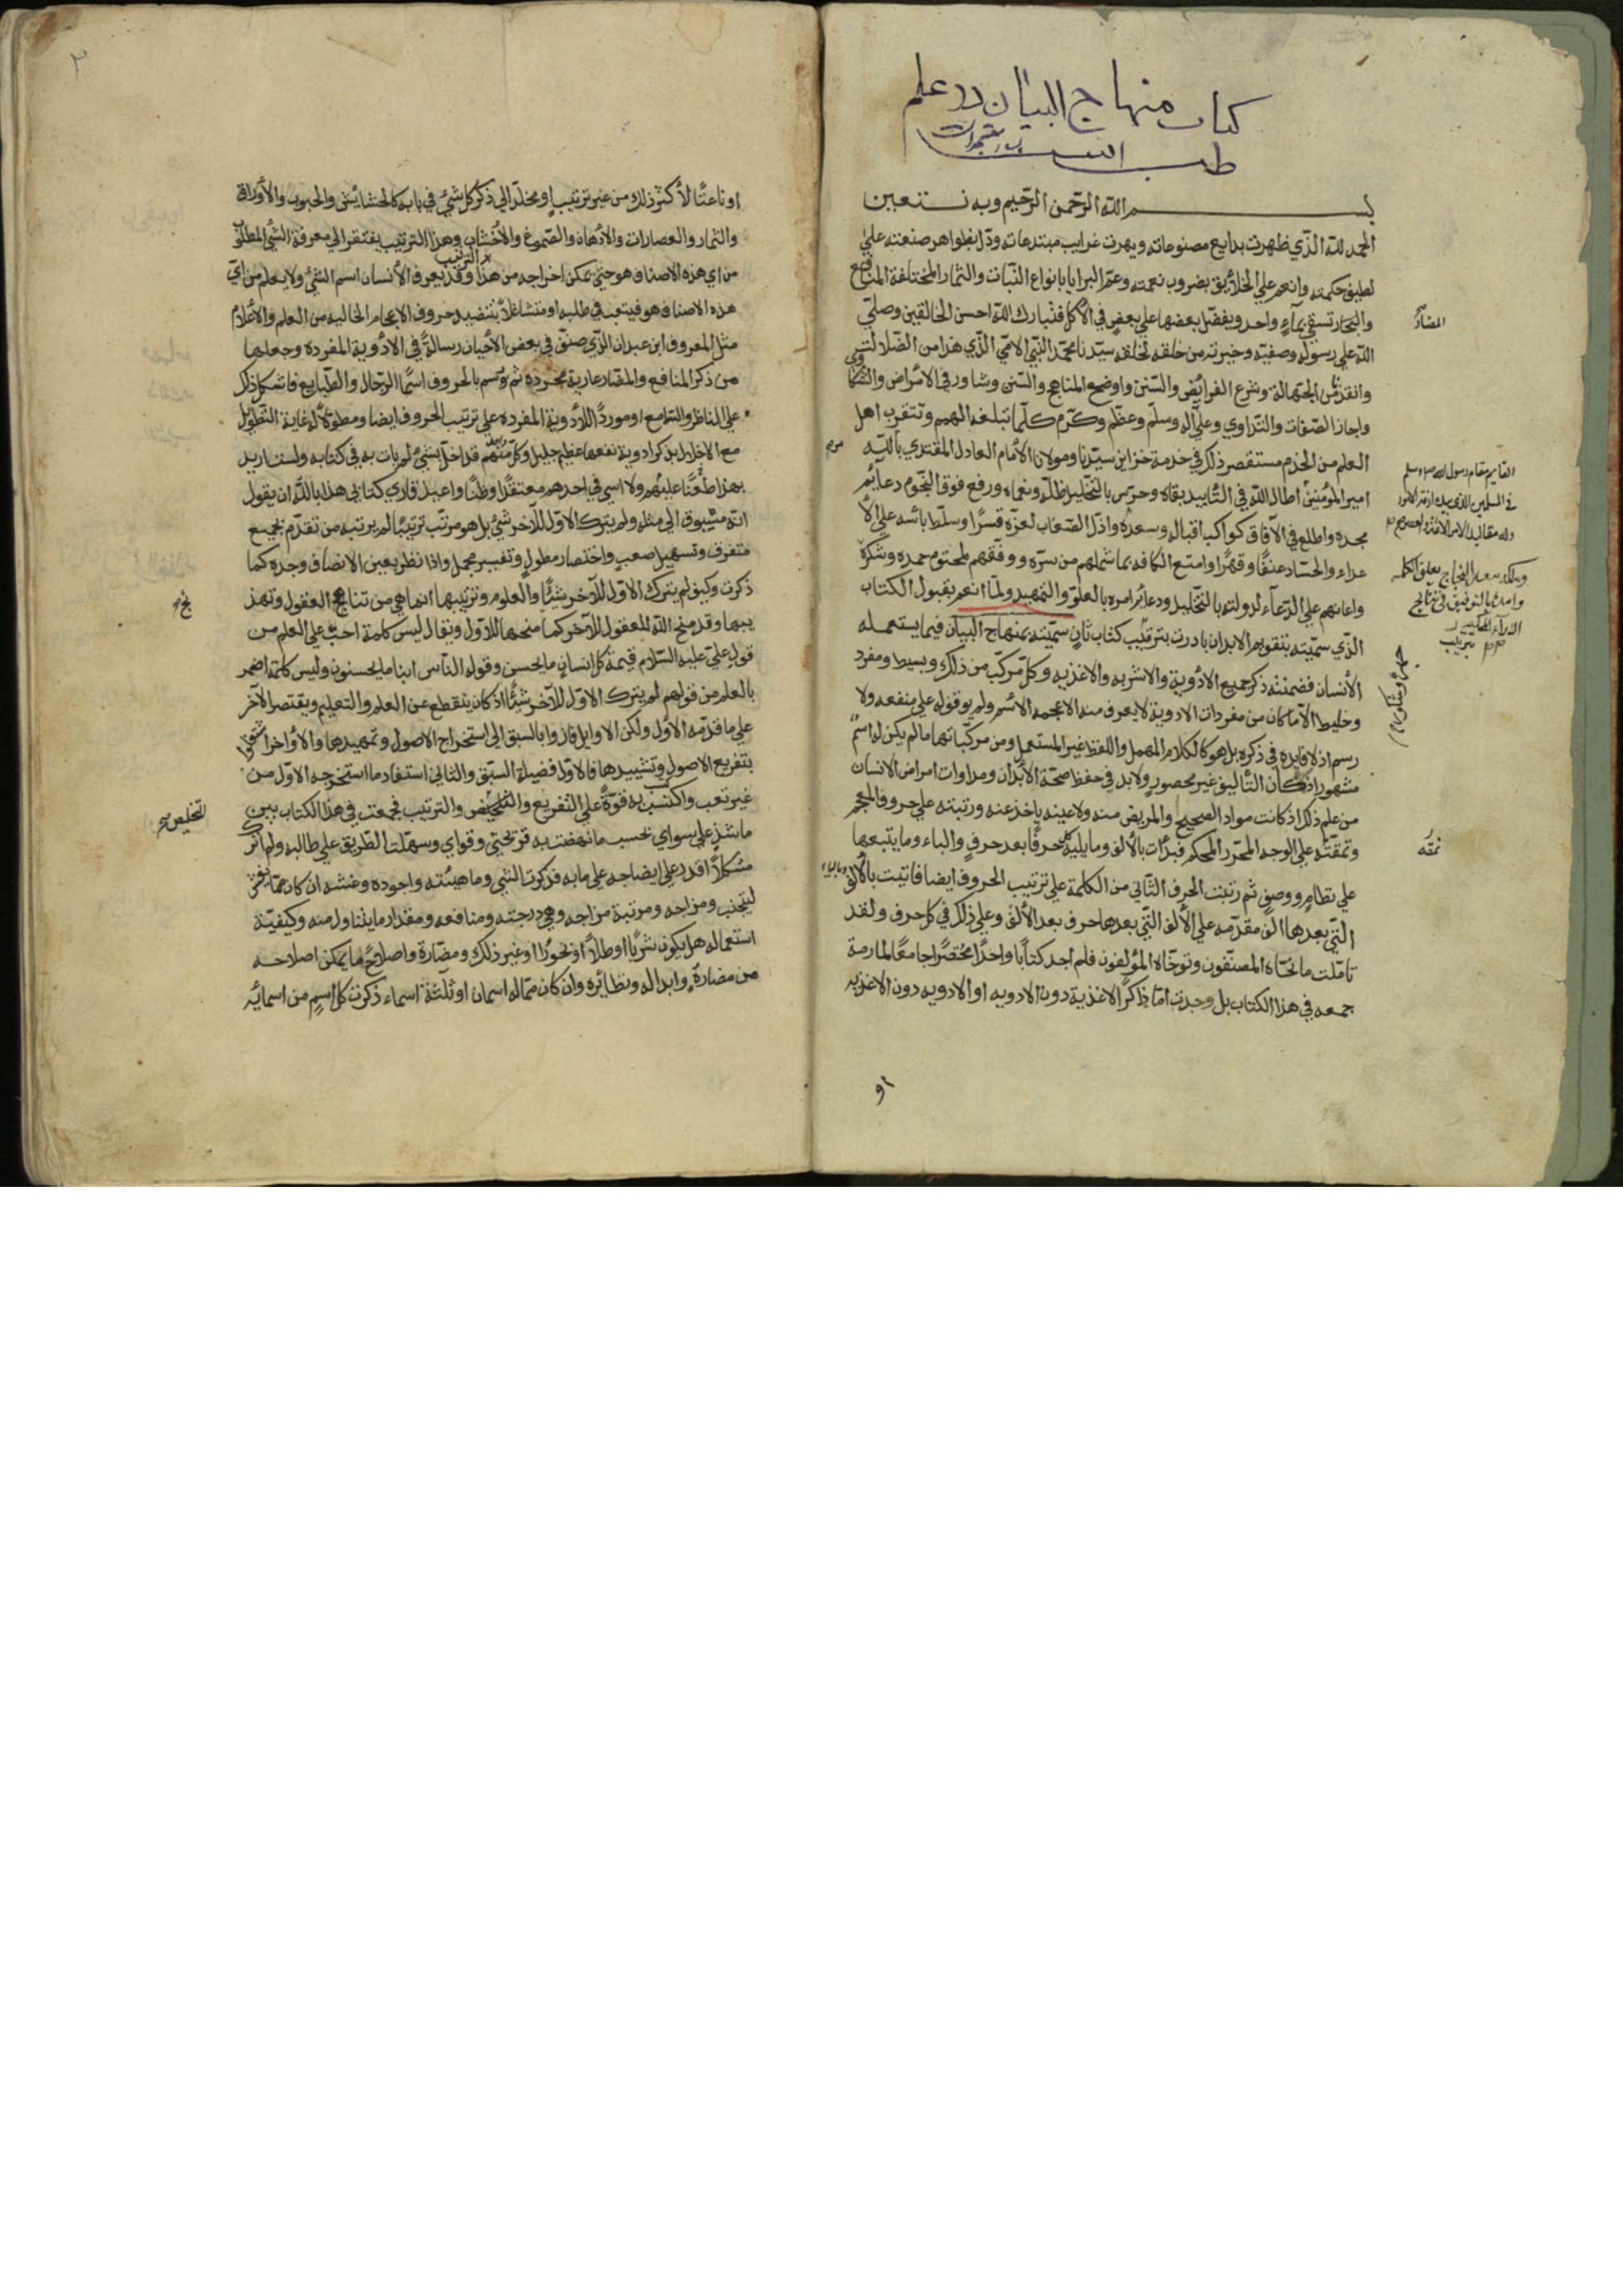 كتاب منهاج البيان در علم
طب
بسم الله الرحمن الرحيم وبه نستعين
الحمد لله الذي ظهرت بدايع مصنوعاته وبهرت غرايب مبتدعاته ودل بظواهر صنعته علي
لطيف حكمته وانعم علي الخلائق بضروب نعمته وعم البرايا بانواع النبات والثمار المختلفة المنافع
تسقي بماء واحد ويفضل بعضها علي بعض في الأكل فتبارك الله احسن الخالقين وصلي
الله علي رسوله وصفيه وخيرته من خلقه لخلقه سيدنا محمد النبي الامي الذي هدا من الضلالت
وانقذنا من الجهالة وشرع الفرائض والسنن واوضح المناهج والسنن وشاور في الامراض والشكاوي
واجاز الصفات والتداوي وعلي آله وسلم وعظم وكرم كلما تبلغه الهمم وتتقرب اهل
العلم من الخدم مستقصر ذلك في خدمة خزاين سيدنا ومولانا الأمام العادل المقتدي بالله
امير المؤمنين اطال الله في التأييد بقاه وحرس بالتخليد ظله ونعماه ورفع فوق النجوم دعائم
مجده واطلع في الآفاق كواكب اقباله وسعده واذل الصعاب لعزه قسرا وسلط بائسه علي الأ
عداء والحساد عنفا وقهرا وامتع الكافه بما شملهم من بره ووفقهم لمحتوم حمده وشكره
واعانهم علي الدعآء لدولته بالتخليد ودعائم امره بالعلو والتمهيد ولما انعم بقبول الكتاب
الذي سميته بتقويم الابدان بادرت بترتيب كتاب ثان سميته بمنهاج البيان فيما يستعمله
الأنسان فضمنته ذكر جميع الادوية والاشربه والاغذيه وكل مركب من ذلك وبسيط ومفرد
وخليط الا ما كان من مفردات الادوية لا يعرف منه الا عجمه الاسم ولم يوقف له علي منفعه ولا
رسم اذ لا فايده في ذكره بل هو كالكلام المهمل واللفظ غير المستعمل ومن مركباتها ما لم يكن له اسم
مشهور اذ كان التأليف غير محصور ولابد في حفظ صحة الأبدان ومداوات امراض الانسان
من علم ذلك اذ كانت مواد الصحيح والمريض منه ولا غنيه ياخذ عنه ورتبته علي حروف المعجم
ونمقته علي الوجه المحرر المحكم فبدأت بالألف وما يليه حرفا بعد حرف والباء وما يتبعها
علي نظام ووصف ثم رتبت الحرف الثاني من الكلمة علي ترتيب الحروف ايضا فاتيت بالألف
التي بعدها الف مقدمه علي الألف التي بعدها حرف بعد الألف وعلي ذلك في كل حرف ولقد
تاملت ما نحاه المصنفون وتوخاه المؤلفون فلم اجد كتابا واحدا مختصرا جامعا لما رمت
جمعه في هذا الكتاب بل وجدت اما ذاكرا لاغذية دون الادويه او الادويه دون الاغذيه
المضاد
القايم مقام رسول الله
نمقه
او
٢
او تابعا لأكثر ذلك من غير ترتيب او مخلدا الي ذكر كل شئ في بابه كالحشائش والحبوب والأوراق
والثمار والعصارات والادهان والصموغ والأخشاب وهذا الترتيب يفتقر الي معرفة الشئ المطلوب
من اي هذه الاصناف هو حتي يمكن اخراجه من هذا الترتيب وقد يعرف الأنسان اسم الشئ ولا يعلم من اي
هذه الاصناف هو فيتعب في طلبه او متشاغلا بتنضيد حروف الاعجام الخاليه من العلم والأعلام
مثل المعروف ابن عبدان الذي صنف في بعض الأحيان رسالة في الادوية المفرده وجعلها
من ذكر المنافع والمضار عارية مجرده ثم وسم بالحروف اسما الرجال والطبايع فاشكل ذكر
علي الناظر والسامع او موردا للأدوية المفرده علي ترتيب الحروف ايضا ومطولا له غاية التطويل
مع الاخلال بذكر ادوية نفعها عظيم جليل وكل منهم قد اخل بشئ لم يات به في كتابه ولست اريد
بهذا طعنا عليهم ولا اسي في احدهم معتقدا وظنا واعيذ قاري كتابي هذا بالله ان يقول
انه مسبوق الي مثله ولم يترك الاول للآخر شئ بل هو مرتب ترتيبا لم يرتبه من تقدم بجميع
متفرق وتسهيل صعب واختصار مطول وتفسير مجمل واذا نظر بعين الانصاف وجده كما
ذكرت وكيف لم يترك الاول للآخر شيئا والعلوم وترتيبها انما هي من نتايج العقول وتهذ
يبها وقد منح الله المعقول للآخر كما منحها للأول ويقال ليس كلمة احث علي العلم من
قول علي عليه السلام قيمة كل انسان ما يحسن وقوله الناس ابنا ما يحسنون وليس كلمة اضر
بالعلم من قولهم لم يترك الاول للآخر شيئا اذ كان ينقطع عن العلم والتعليم ويقتصر الآخر
علي ما قدمه الأول ولكن الاوايل فازوا بالسبق الي استخراج الاصول وتمهيدها والأواخر اشتغلوا
بتفريع الاصول وتشييدها فالاول فضيلة السبق والثاني استفاد ما استخرجه الاول من
غير تعب واكتسب به قوة علي التفريع والتلخيص والترتيب فجمعت في هذا الكتاب بين
ما شذ علي سواي بحسب ما نهضت به قريحتي وقواي وسهلت الطريق علي طالبه ولم اترك
مشكلا اقدر علي ايضاحه علي ما به فذكرت الشي وما هيئته واجوده وغشه ان كان مما يغش
ليتجنب ومزاجه ومرتبة مزاجه وهي درجته ومنافعه ومقدار ما يتناول منه وكيفية
استعماله هل يكون شربا او طلا او بخورا او غير ذلك ومضاره واصلاح ما يمكن اصلاحه
من مضاره وابداله ونظائره وان كان مما له اسمان او ثلثة اسماء ذكرت كل اسم من اسمائه